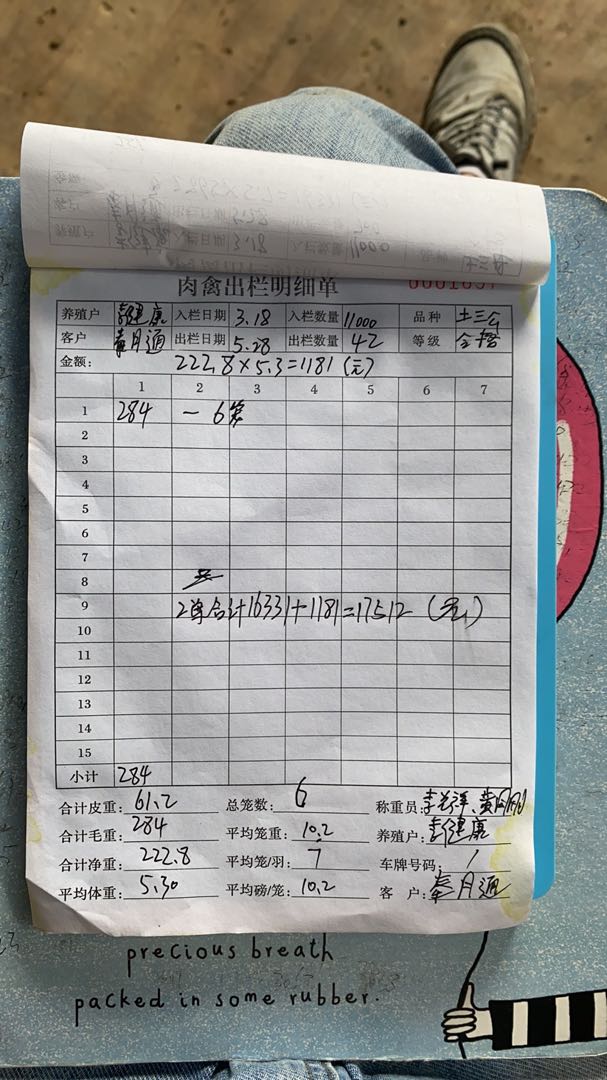 肉禽出栏明细单
养殖户 李健康 入栏日期 3.18 入栏数量 11000 品种 土三
客户 秦月通 出栏日期 5.28 出栏数量 42 等级
金额: 222.8×5.3=1181(元)
1 2 3 4 5 6 7
1 284 — 6笼
2
3
4
5
6
7
8
9 2单合计16331+1181=17512(元)
10
11
12
13
14
15
小计 284
合计皮重: 61.2 总笼数: 6 称重员:
合计毛重: 284 平均笼重: 10.2 养殖户: 李健康
合计净重: 222.8 平均笼/羽: 7 车牌号码: /
平均体重: 5.30 平均磅/笼: 10.2 客户: 秦月通
precious breath
packed in some rubber.